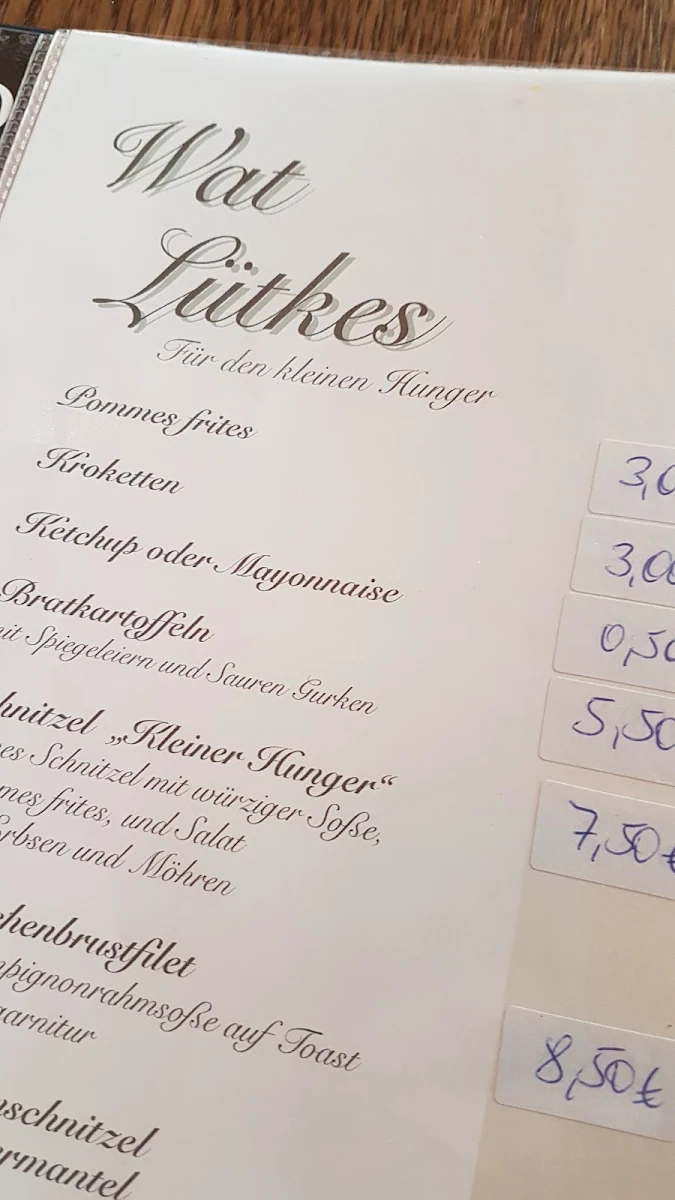 Wat
Lütkes
Für den kleinen Hunger
Pommes frites
3,0
Kroketten
3,00
Ketchup oder Mayonnaise
0,50
Bratkartoffeln
mit Spiegeleiern und Sauren Gurken
5,50
hnitzel „Kleiner Hunger“
es Schnitzel mit würziger Soße,
mes frites, und Salat
Erbsen und Möhren
7,50€
chenbrustfilet
pignonrahmsoße auf Toast
garnitur
8,50€
schnitzel
ermantel